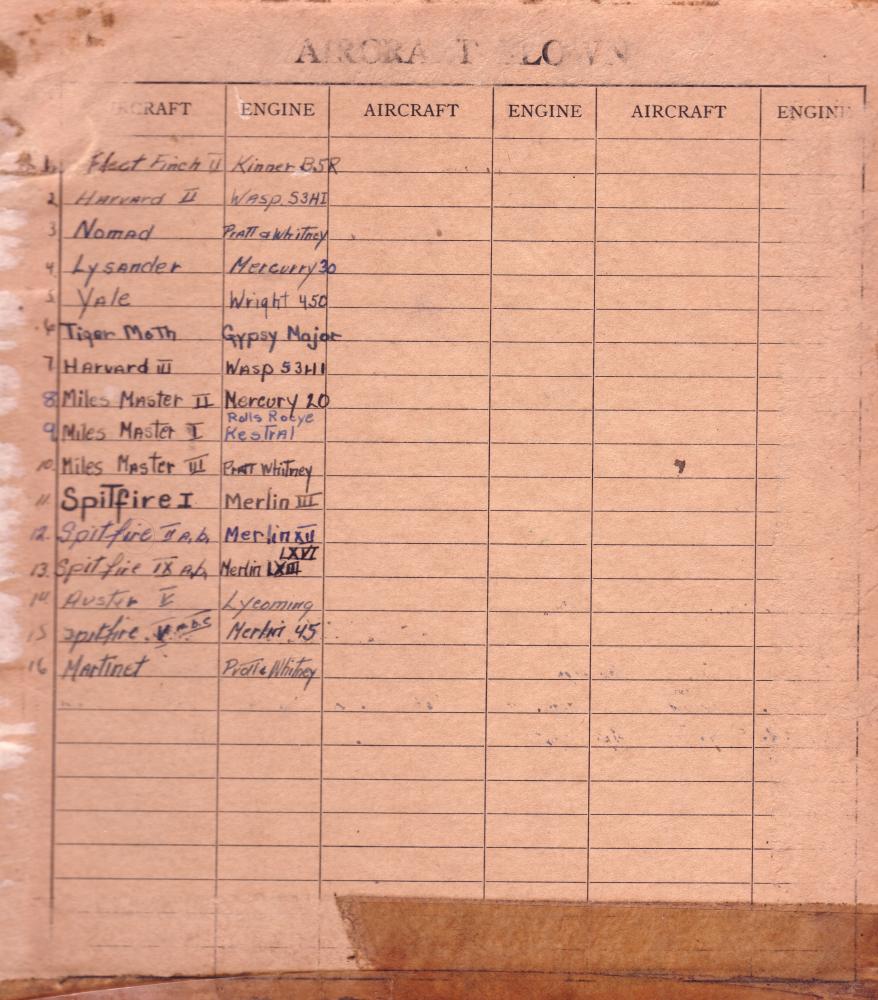 AIRCRAFT FLOWN
AIRCRAFT ENGINE AIRCRAFT ENGINE AIRCRAFT ENGINE
1. Fleet Finch II Kinner B5R
2 Harvard II Wasp S3H1
3 Nomad Pratt & Whitney
4 Lysander Mercurry 30
5 Yale Wright 450
6 Tiger Moth Gypsy Major
7 Harvard III Wasp S3H1
8 Miles Master II Mercury 20
9 Miles Master I Rolls Royce
Kestral
10. Miles Master III Pratt Whitney
11. Spitfire I Merlin III
12. Spitfire II a,b, Merlin XII
LXVI
13. Spitfire IX a,b, Merlin LXIII
14 Auster V Lycoming
15 Spitfire V ABC Merlin 45
16 Martinet Pratt & Whitney